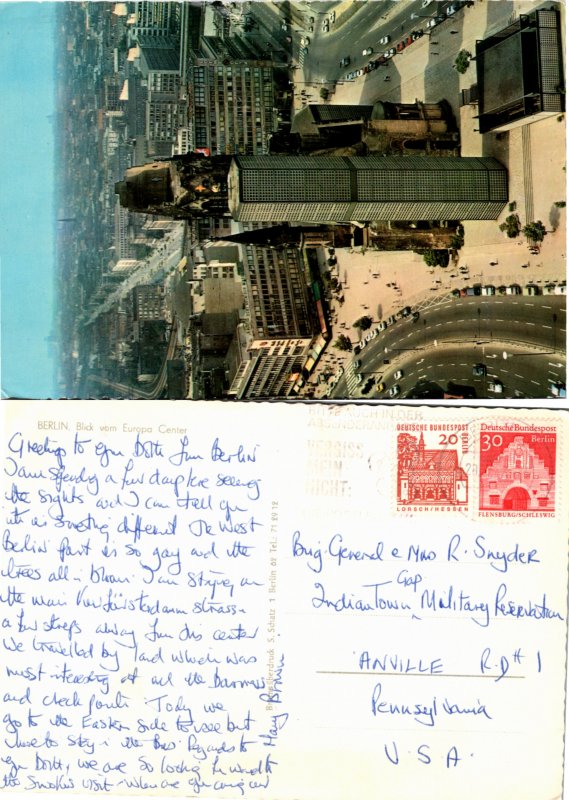 BERLIN. Blick vom Europa Center
Greetings to you both from Berlin
I am spending a few days here seeing
the sights and I can tell you
its is something different The West
Berlin part is so gay and the
trees all in bloom. I am staying on
the main Kurfürstendamm Strasse
a few steps away from this center
We travelled by land which was
most interesting at all the barriers
and check points. Today we
go to the Eastern side to see but
have to stay in the bus. Regards to
you both, we are so looking forward to
the visit - when are you coming over
Harry
S. Schatz 1 Berlin 69 Tel.: 71 29 12
AUCH IN DER
VERGISS
MEIN
NICHT:
DEUTSCHE BUNDESPOST
BERLIN
20
LORSCH/HESSEN
Deutsche Bundespost
30
Berlin
FLENSBURG/SCHLESWIG
Brig. General e Mrs R. Snyder
Indian Town Gap Military Reservation
ANVILLE R.D # 1
Pennsylvania
U.S.A.